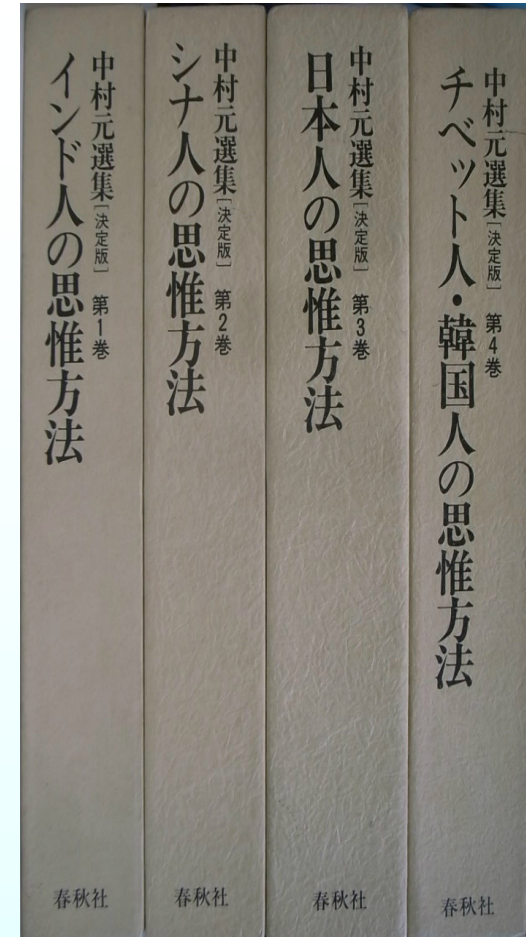 中村元選集［決定版］ 第1巻
インド人の思惟方法
春秋社
中村元選集［決定版］ 第2巻
シナ人の思惟方法
春秋社
中村元選集［決定版］ 第3巻
日本人の思惟方法
春秋社
中村元選集［決定版］ 第4巻
チベット人・韓国人の思惟方法
春秋社